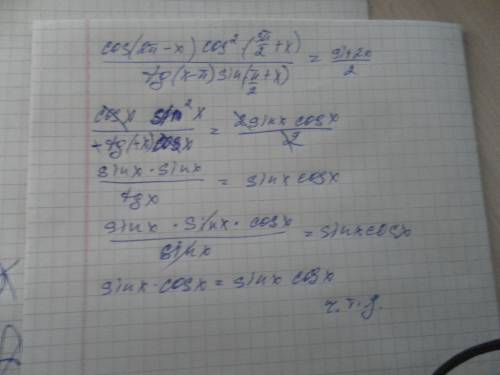 cos(2π-x) cos²(π/2+x) / tg(x-π) sin(π/2+x) = sin2x / 2
cosx sin²x / -tg(-x) cosx = 2sinx cosx / 2
sinx · sinx / tgx = sinx cosx
sinx · sinx · cosx / sinx = sinx cosx
sinx · cosx = sinx cosx
ч.т.д.